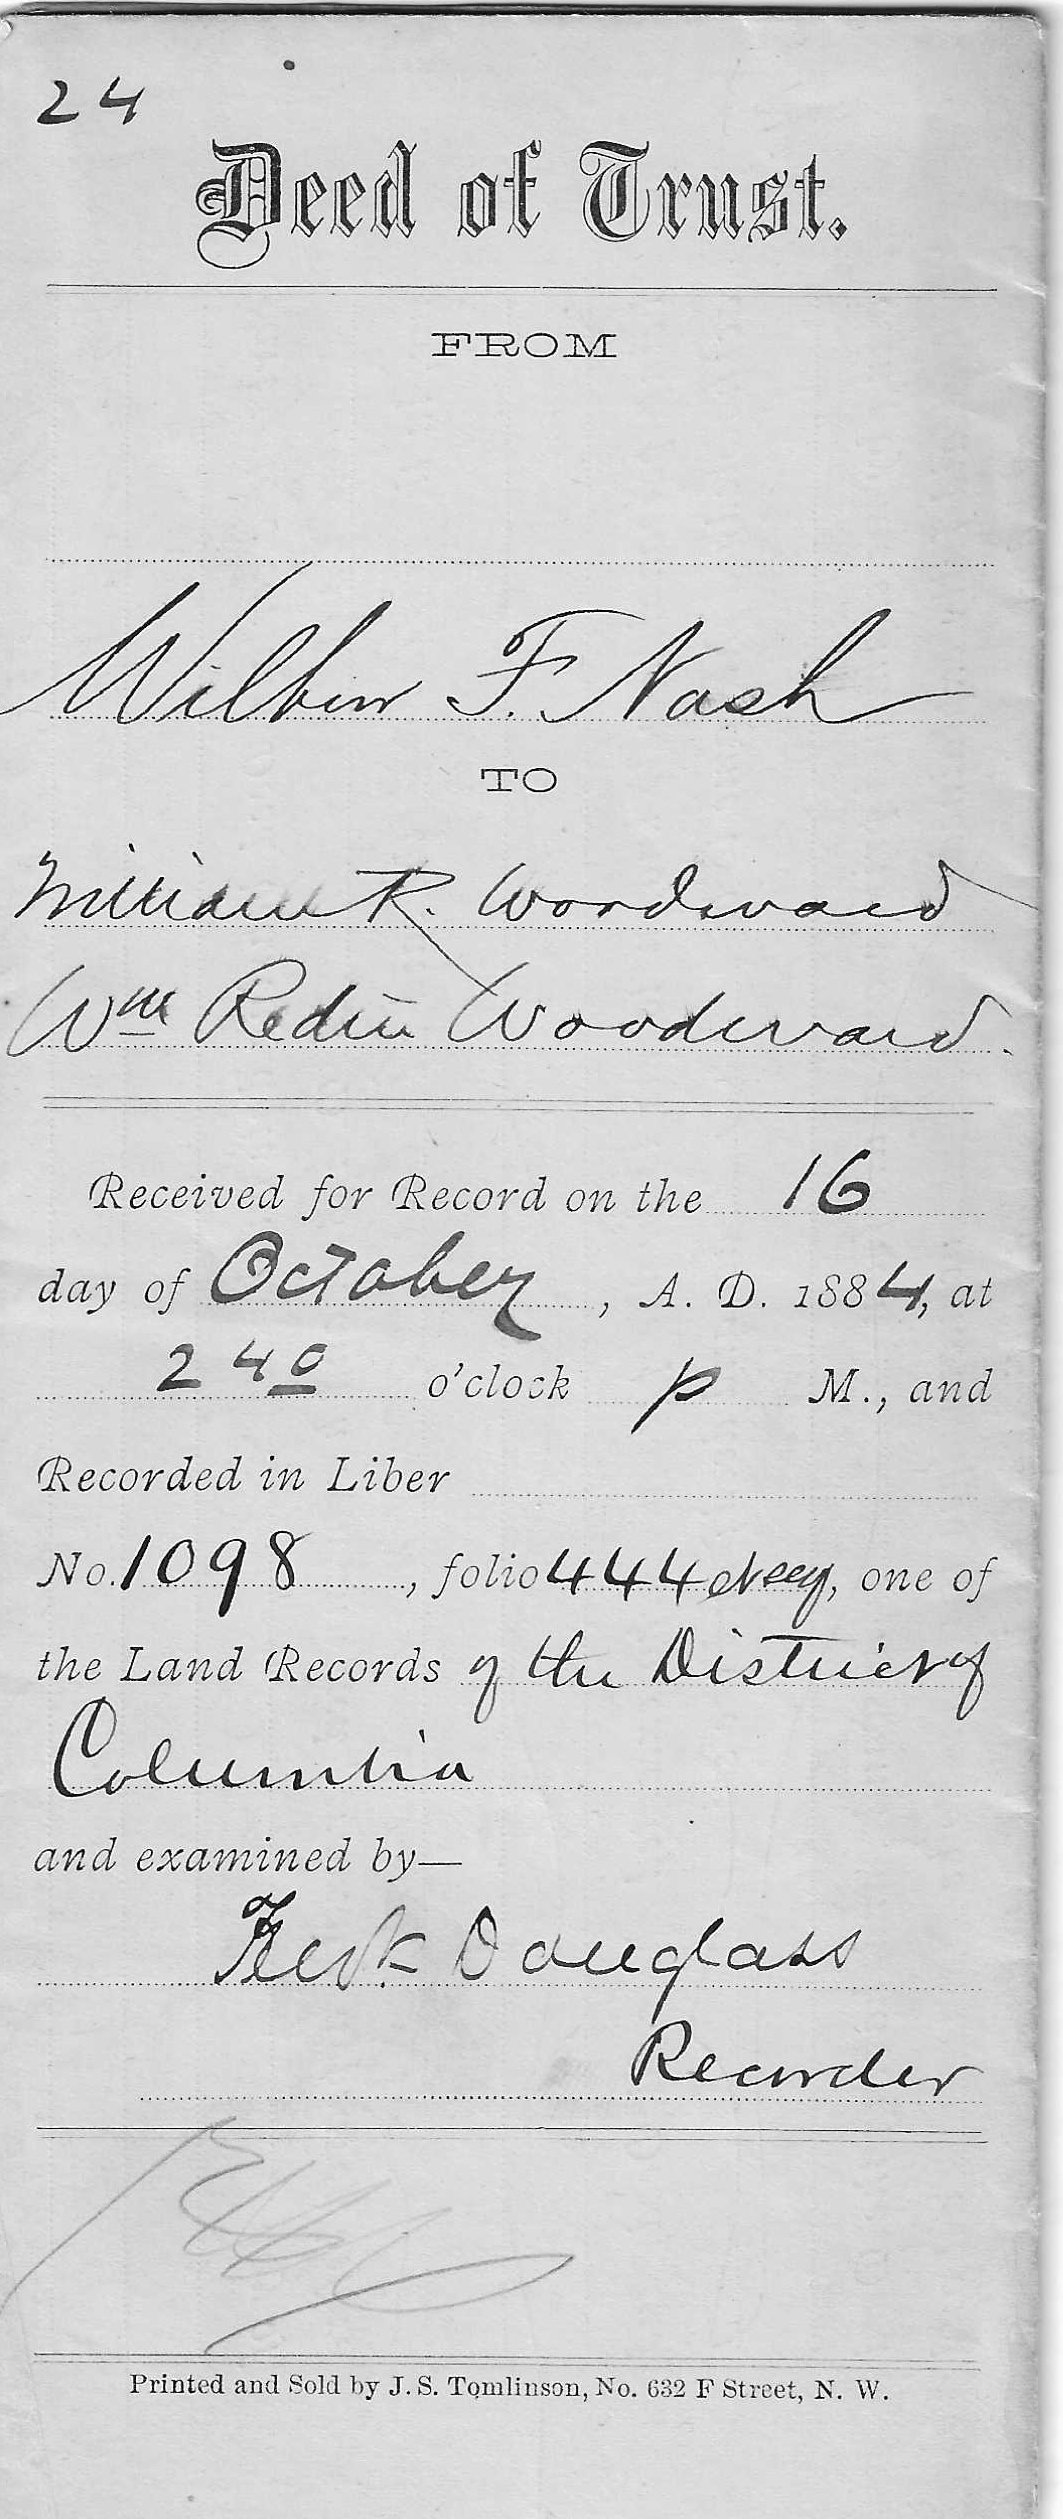 24
Deed of Trust.
FROM
Wilbur F. Nash
TO
William R. Woodward
Wm Redin Woodward.
Received for Record on the 16
day of October, A. D. 1884, at
2 40 o'clock p M., and
Recorded in Liber
No. 1098, folio 444 et seq, one of
the Land Records of the District of
Columbia
and examined by—
Fredk Douglass
Recorder
Printed and Sold by J. S. Tomlinson, No. 632 F Street, N. W.